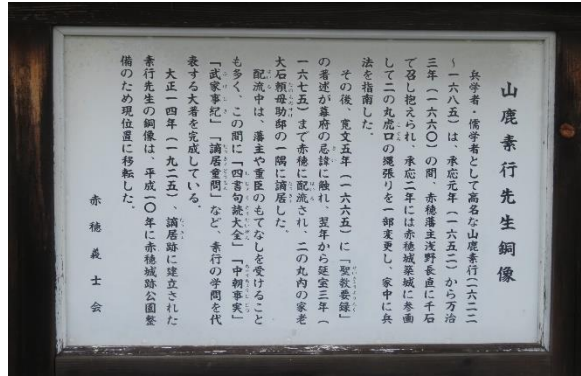 山鹿素行先生銅像
兵学者・儒学者として高名な山鹿素行(一六二二
~一六八五)は、承応元年(一六五二)から万治
三年(一六六〇)の間、赤穂藩主浅野長直に千石
で召し抱えられ、承応二年には赤穂城築城に参画
して二の丸虎口の縄張りを一部変更し、家中に兵
法を指南した。
その後、寛文五年(一六六五)に「聖教要録」
の著述が幕府の忌諱に触れ、翌年から延宝三年(
一六七五)まで赤穂に配流され、二の丸内の家老
大石頼母助邸の一隅に謫居した。
配流中は、藩主や重臣のもてなしを受けること
も多く、この間に「四書句読大全」「中朝事実」
「武家事紀」「謫居童問」など、素行の学問を代
表する大著を完成している。
大正一四年(一九二五)、謫居跡に建立された
素行先生の銅像は、平成一〇年に赤穂城跡公園整
備のため現位置に移転した。
赤穂義士会